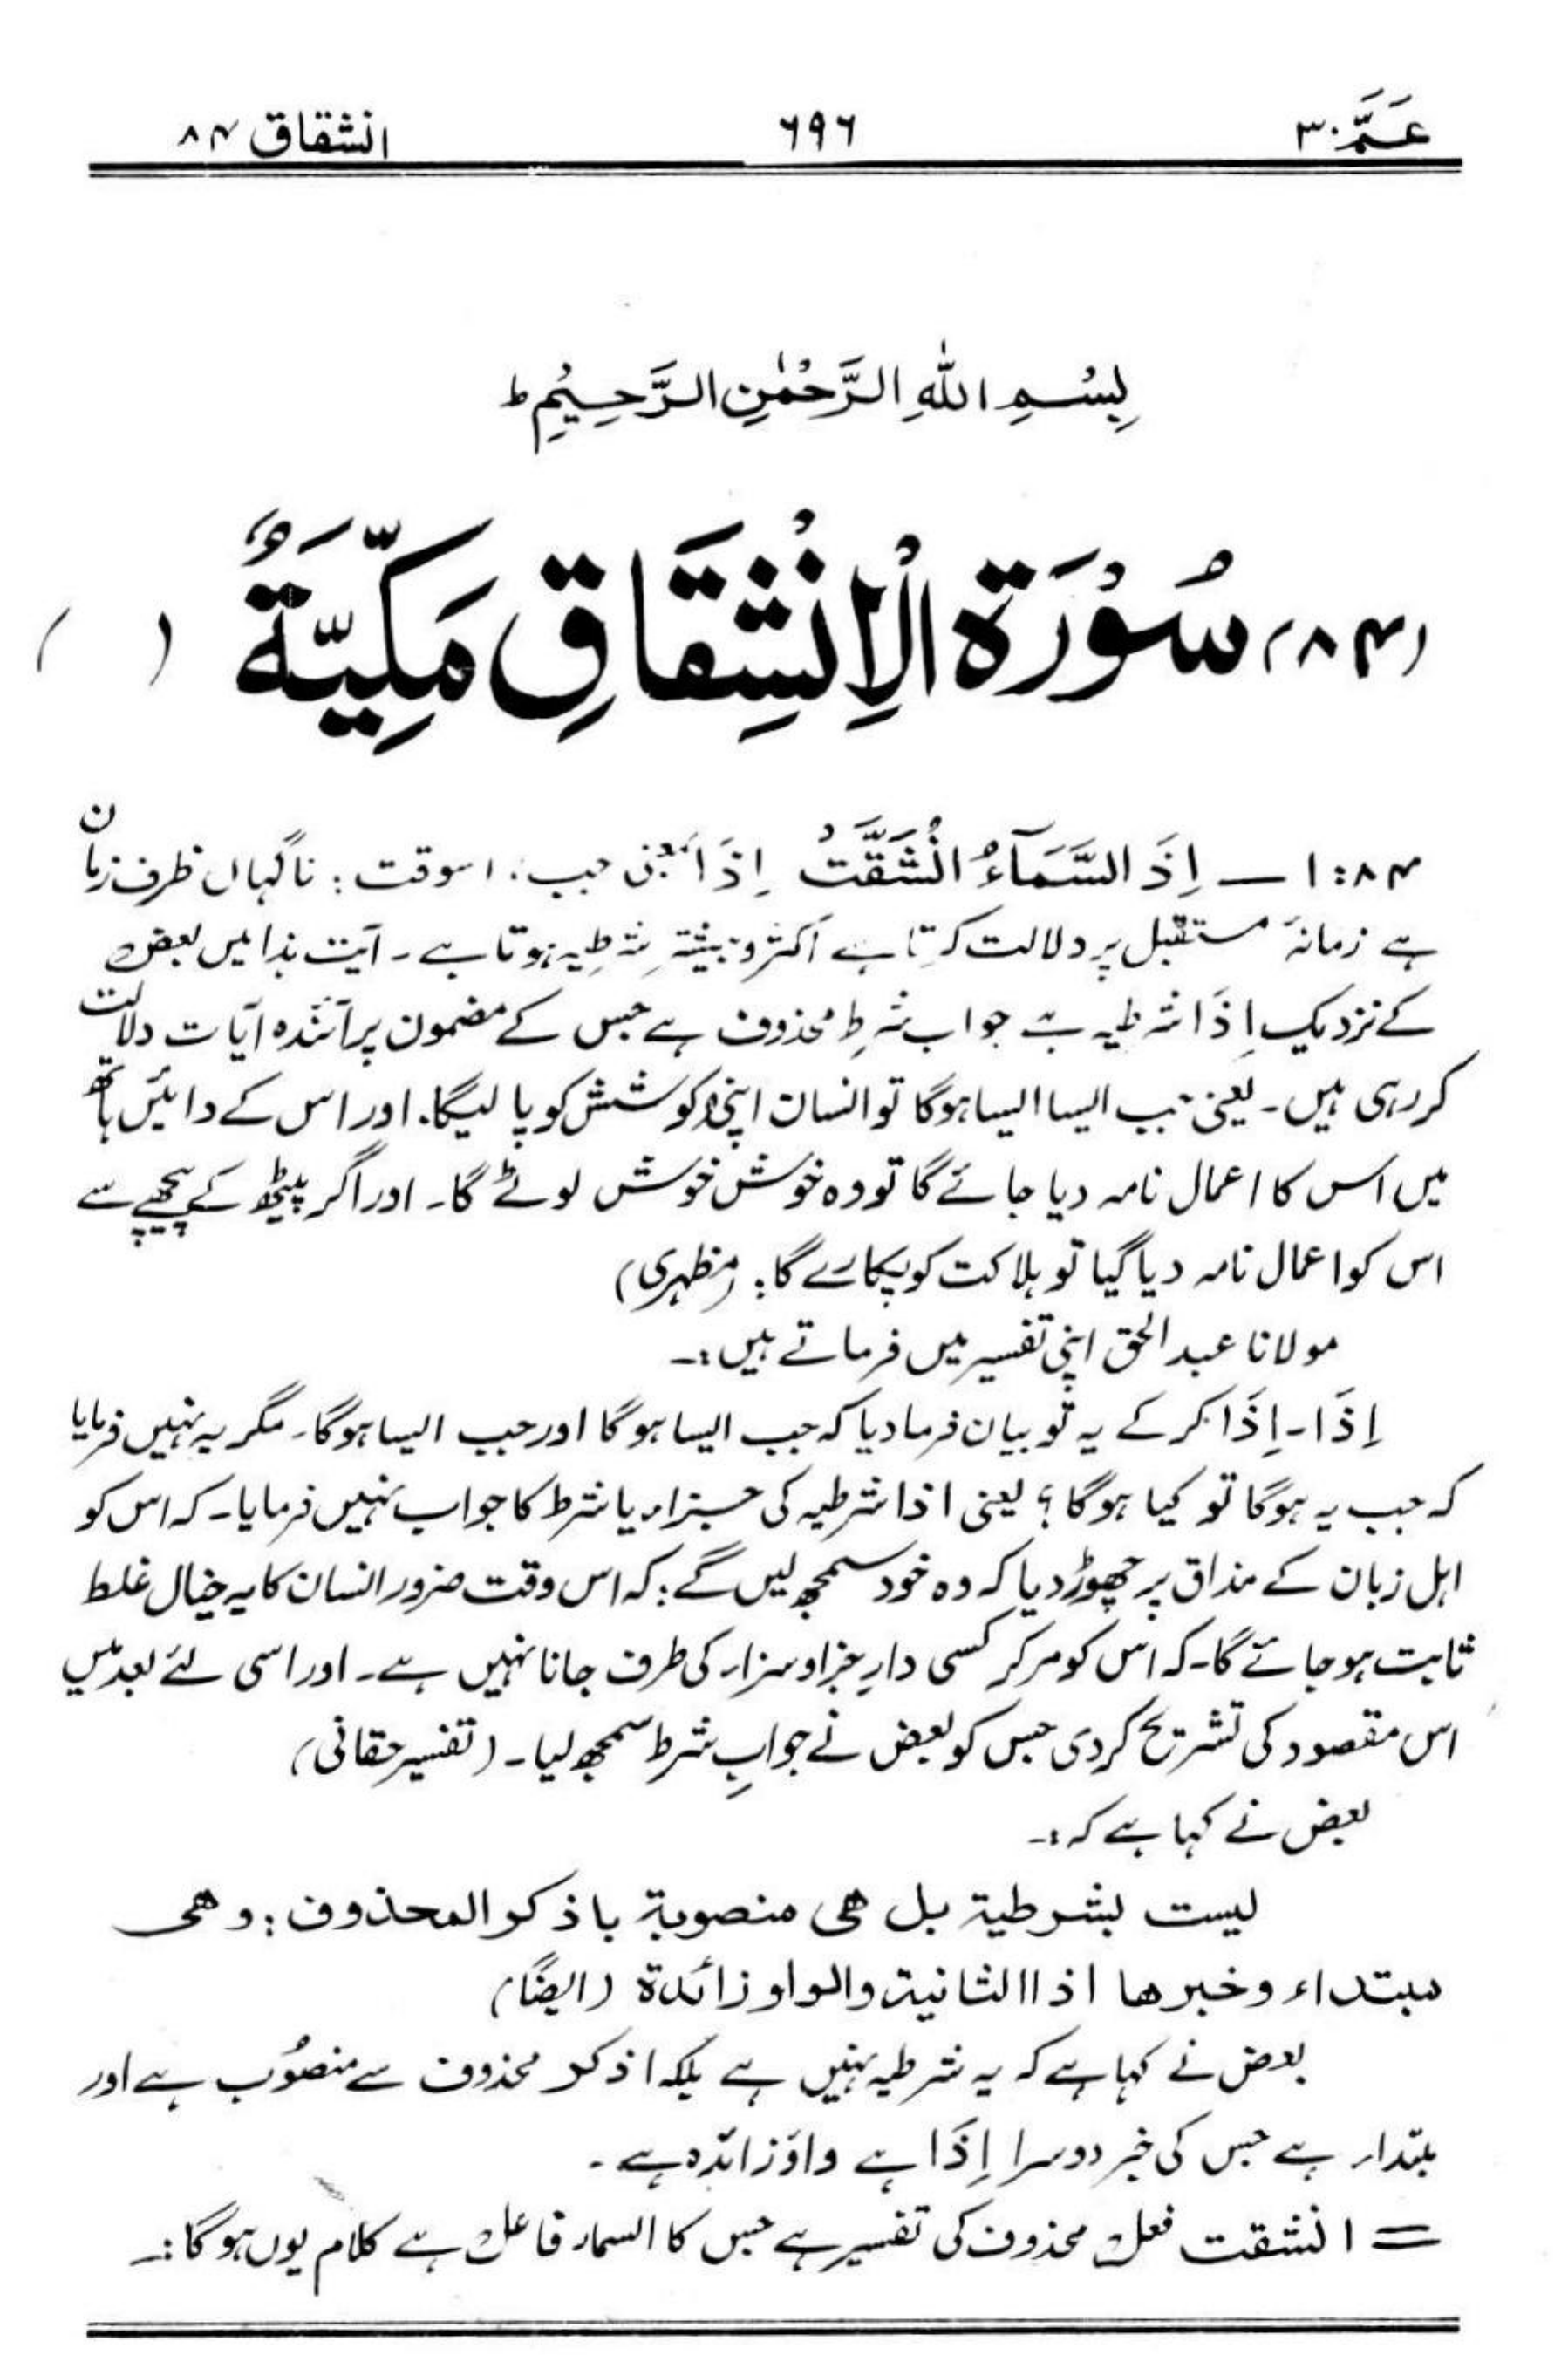 عَمَّ ۳۰
۶۹۶
انشقاق ۸۴
بِسْمِ اللّٰہِ الرَّحْمٰنِ الرَّحِیْمِ ط
(۸۴) سُوْرَۃُ الْاِنْشِقَاقِ مَکِّیَّۃٌ ( )
۸۴:۱ — اِذَ السَّمَآءُ انْشَقَّتْ اِذَا بمعنی جب: اسوقت: ناگہاں ظرف زمان
ہے زمانۂ مستقبل پر دلالت کرتا ہے اکثر و بیشتر شرطیہ ہوتا ہے۔ آیت ہذا میں بعض
کے نزدیک اِذَا شرطیہ ہے جواب شرط محذوف ہے جس کے مضمون پر آئندہ آیات دلالت
کر رہی ہیں۔ یعنی جب ایسا ایسا ہوگا تو انسان اپنی کوشش کو پالیگا۔ اور اس کے دائیں ہاتھ
میں اس کا اعمال نامہ دیا جائے گا تو وہ خوش خوش لوٹے گا۔ اور اگر پیٹھ کے پیچھے سے
اس کو اعمال نامہ دیا گیا تو ہلاکت کو پکارے گا: (مظہری)
مولانا عبدالحق اپنی تفسیر میں فرماتے ہیں:۔
اِذَا۔ اِذَا کر کے یہ تو بیان فرما دیا کہ جب ایسا ہوگا اور جب ایسا ہوگا۔ مگر یہ نہیں فرمایا
کہ جب یہ ہوگا تو کیا ہوگا؟ یعنی اذا شرطیہ کی جزاء یا شرط کا جواب نہیں فرمایا۔ کہ اس کو
اہل زبان کے مذاق پر چھوڑ دیا کہ وہ خود سمجھ لیں گے: کہ اس وقت ضرور انسان کا یہ خیال غلط
ثابت ہو جائے گا۔ کہ اس کو مر کر کسی دارِ جزا و سزاء کی طرف جانا نہیں ہے۔ اور اسی لئے بعد میں
اس مقصود کی تشریح کر دی جس کو بعض نے جوابِ شرط سمجھ لیا۔ (تفسیر حقانی)
بعض نے کہا ہے کہ:۔
لیست بشرطیۃ بل ھی منصوبۃ باذکر المحذوف: وھی
مبتداء وخبرھا اذا الثانیۃ والواو زائدۃ (ایضًا)
بعض نے کہا ہے کہ یہ شرطیہ نہیں ہے بلکہ اذکر محذوف سے منصُوب ہے اور
مبتداء ہے جس کی خبر دوسرا اِذَا ہے واؤ زائدہ ہے۔
= انشقت فعل محذوف کی تفسیر ہے جس کا السماء فاعل ہے کلام یوں ہوگا:۔